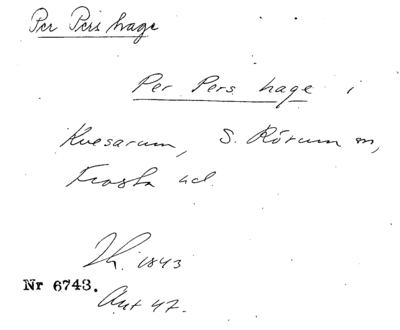 Per Pers hage
Per Pers hage i
Kvesarum, S. Rörum sn,
Frosta hd.
Lh. 1843
Nr 6743.
Ant 47.